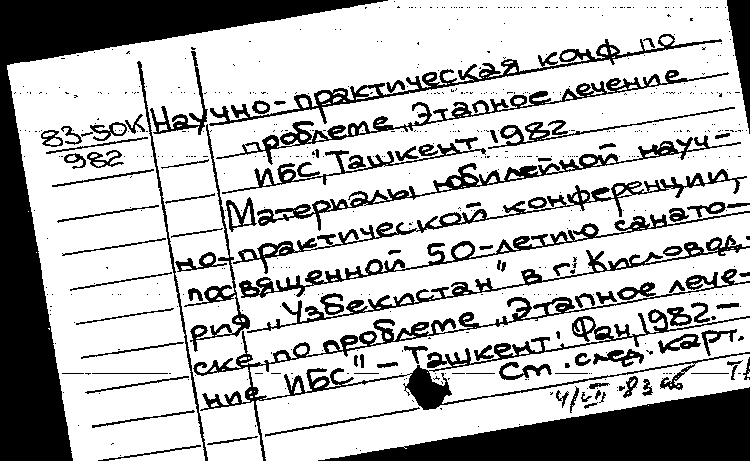 83-50К
982
Научно-практическая конф. по
проблеме „Этапное лечение
ИБС", Ташкент, 1982.
Материалы юбилейной науч-
но-практической конференции,
посвященной 50-летию санато-
рия „Узбекистан" в г. Кисловод-
ске, по проблеме „Этапное лече-
ние ИБС". – Ташкент: Фан, 1982. –
См. след. карт.
4/VII-83